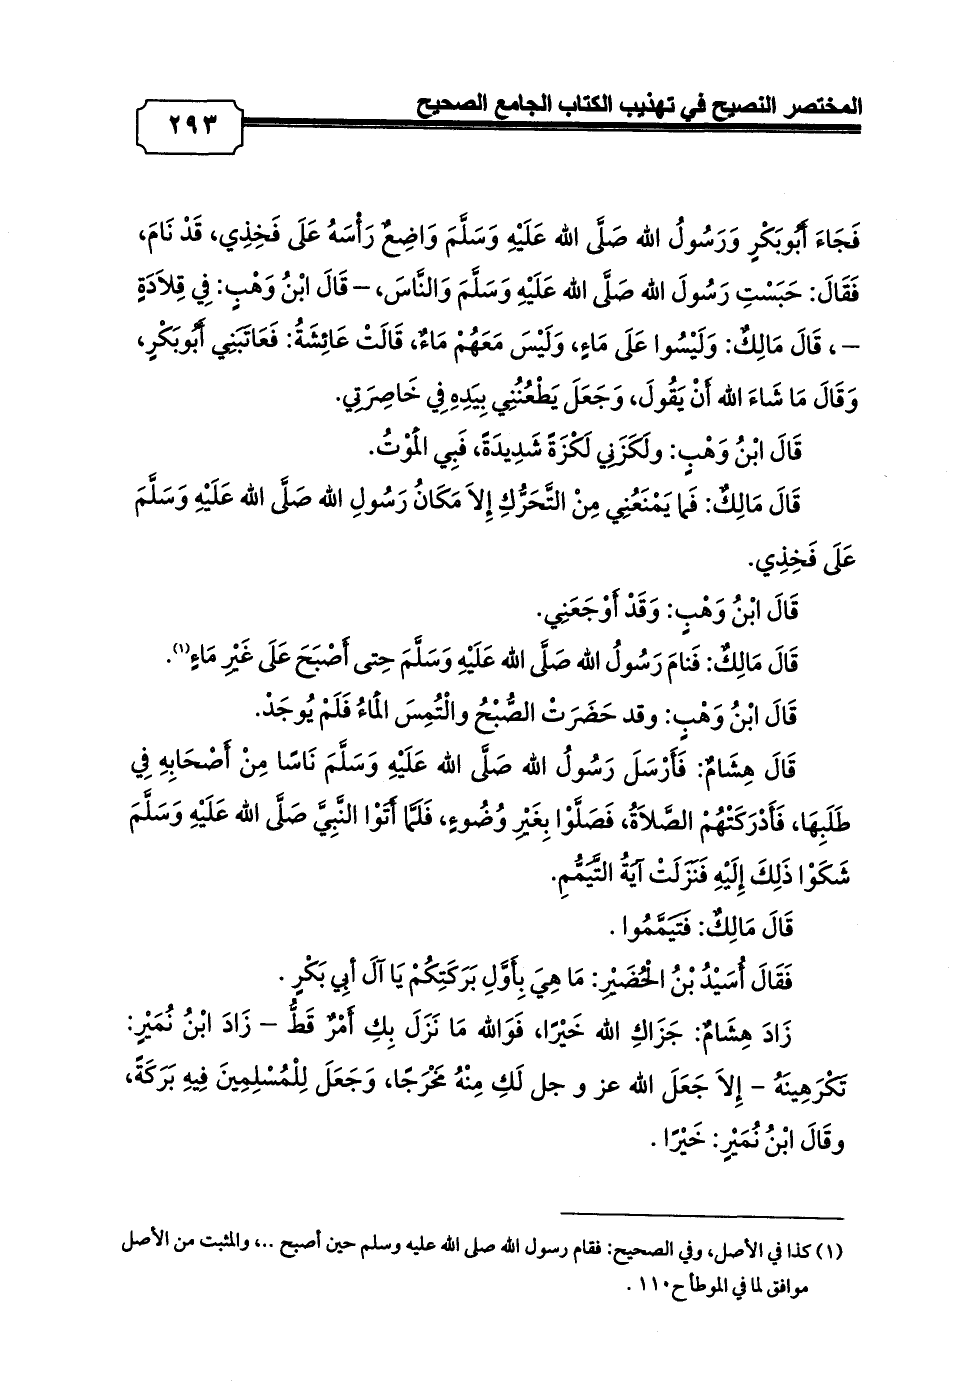 المختصر النصيح في تهذيب الكتاب الجامع الصحيح
٢٩٣
فَجَاءَ أَبُوبَكْرٍ وَرَسُولُ الله صَلَّى الله عَلَيْهِ وَسَلَّمَ وَاضِعٌ رَأْسَهُ عَلَى فَخِذِي، قَدْ نَامَ،
فَقَالَ: حَبَسْتِ رَسُولَ الله صَلَّى الله عَلَيْهِ وَسَلَّمَ وَالنَّاسَ، – قَالَ ابْنُ وَهْبٍ: فِي قِلاَدَةٍ
–، قَالَ مَالِكٌ: وَلَيْسُوا عَلَى مَاءٍ، وَلَيْسَ مَعَهُمْ مَاءٌ، قَالَتْ عَائِشَةُ: فَعَاتَبَنِي أَبُوبَكْرٍ،
وَقَالَ مَا شَاءَ الله أَنْ يَقُولَ، وَجَعَلَ يَطْعُنُنِي بِيَدِهِ فِي خَاصِرَتِي.
قَالَ ابْنُ وَهْبٍ: ولَكَزَنِي لَكْزَةً شَدِيدَةً، فَبِي الْمَوْتُ.
قَالَ مَالِكٌ: فَمَا يَمْنَعُنِي مِنْ التَّحَرُّكِ إِلاَ مَكَانُ رَسُولِ الله صَلَّى الله عَلَيْهِ وَسَلَّمَ
عَلَى فَخِذِي.
قَالَ ابْنُ وَهْبٍ: وَقَدْ أَوْجَعَنِي.
قَالَ مَالِكٌ: فَنَامَ رَسُولُ الله صَلَّى الله عَلَيْهِ وَسَلَّمَ حِتى أَصْبَحَ عَلَى غَيْرِ مَاءٍ(١).
قَالَ ابْنُ وَهْبٍ: وقد حَضَرَتْ الصُّبْحُ والْتُمِسَ الْمَاءُ فَلَمْ يُوجَدْ.
قَالَ هِشَامٌ: فَأَرْسَلَ رَسُولُ الله صَلَّى الله عَلَيْهِ وَسَلَّمَ نَاسًا مِنْ أَصْحَابِهِ فِي
طَلَبِهَا، فَأَدْرَكَتْهُمْ الصَّلاَةُ، فَصَلَّوْا بِغَيْرِ وُضُوءٍ، فَلَمَّا أَتَوْا النَّبِيَّ صَلَّى الله عَلَيْهِ وَسَلَّمَ
شَكَوْا ذَلِكَ إِلَيْهِ فَنَزَلَتْ آيَةُ التَّيَمُّمِ.
قَالَ مَالِكٌ: فَتَيَمَّمُوا .
فَقَالَ أُسَيْدُ بْنُ الْحُضَيْرِ: مَا هِيَ بِأَوَّلِ بَرَكَتِكُمْ يَا آلَ أبِي بَكْرٍ .
زَادَ هِشَامٌ: جَزَاكِ الله خَيْرًا، فَوَالله مَا نَزَلَ بِكِ أَمْرٌ قَطُّ – زَادَ ابْنُ نُمَيْرٍ:
تَكْرَهِينَهُ – إِلاَ جَعَلَ الله عز و جل لَكِ مِنْهُ مَخْرَجًا، وَجَعَلَ لِلْمُسْلِمِينَ فِيهِ بَرَكَةً،
وقَالَ ابْنُ نُمَيْرٍ: خَيْرًا .
(١) كذا في الأصل، وفي الصحيح: فقام رسول الله صلى الله عليه وسلم حين أصبح ..، والمثبت من الأصل
موافق لما في الموطأ ح١١٠ .